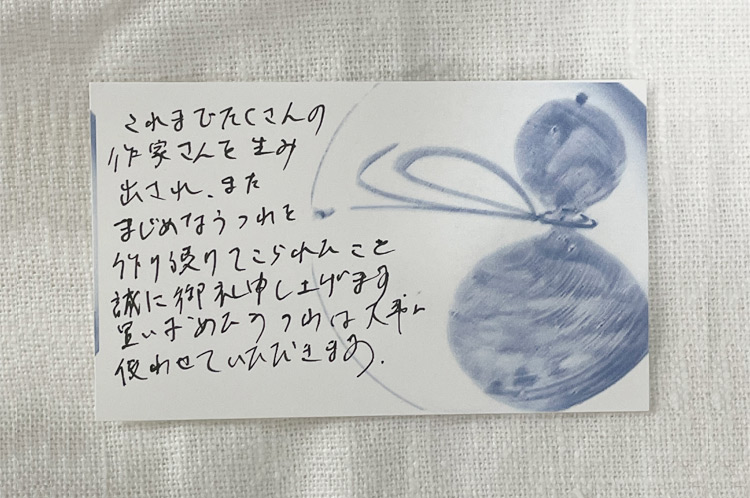 これまでたくさんの
作家さんを生み
出され、また
まじめなうつわを
作り続けてこられたこと
誠に御礼申し上げます
買いぞめたうつわは大事に
使わせていただきます。